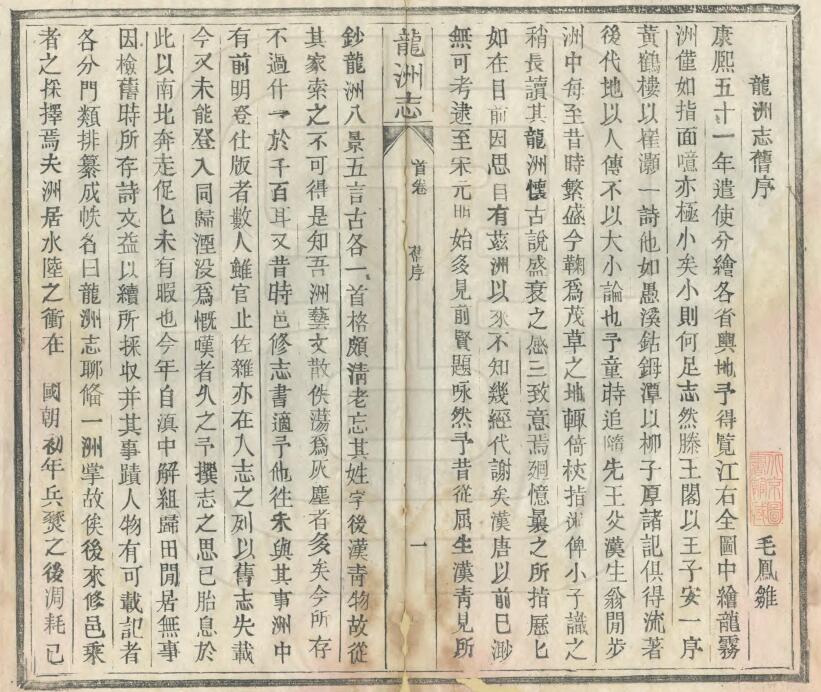 龍洲志舊序
毛鳳雛
康熙五十一年遣使分繪各省輿地予得覧江右全圖中繪龍霧
洲僅如指面噫亦極小矣小則何足志然滕王閣以王子安一序
黃鶴樓以崔灝一詩他如愚溪鈷鉧潭以柳子厚諸記俱得流著
後代地以人傳不以大小論也予童時追隨先王父漢生翁閒步
洲中每至昔時繁盛今鞠爲茂草之地輒倚杖指洲俾小子識之
稍長讀其龍洲懷古說盛衰之感三致意焉廻憶曩之所指歷匕
如在目前因思目有茲洲以來不知幾經代謝矣漢唐以前已渺
無可考逮至宋元明始多見前賢題咏然予昔從屈生漢靑見所
龍洲志
首卷
舊序
一
鈔龍洲八景五言古各一首格頗淸老忘其姓字後漢靑物故從
其家索之不可得是知吾洲藝文散佚蕩爲灰塵者多矣今所存
不過什一於千百耳又昔時邑修志書適予他徃未與其事洲中
有前明登仕版者數人雖官止佐雜亦在人志之列以舊志失載
今又未能登入同歸湮没爲慨嘆者久之予撰志之思已胎息於
此以南北奔走促匕未有暇也今年自滇中解組歸田閒居無事
因檢舊時所存詩文益以續所採収并其事蹟人物有可載記者
各分門類排纂成帙名曰龍洲志聊偹一洲掌故俟後來修邑乘
者之採擇焉夫洲居水陸之衝在　國朝初年兵燹之後凋耗已